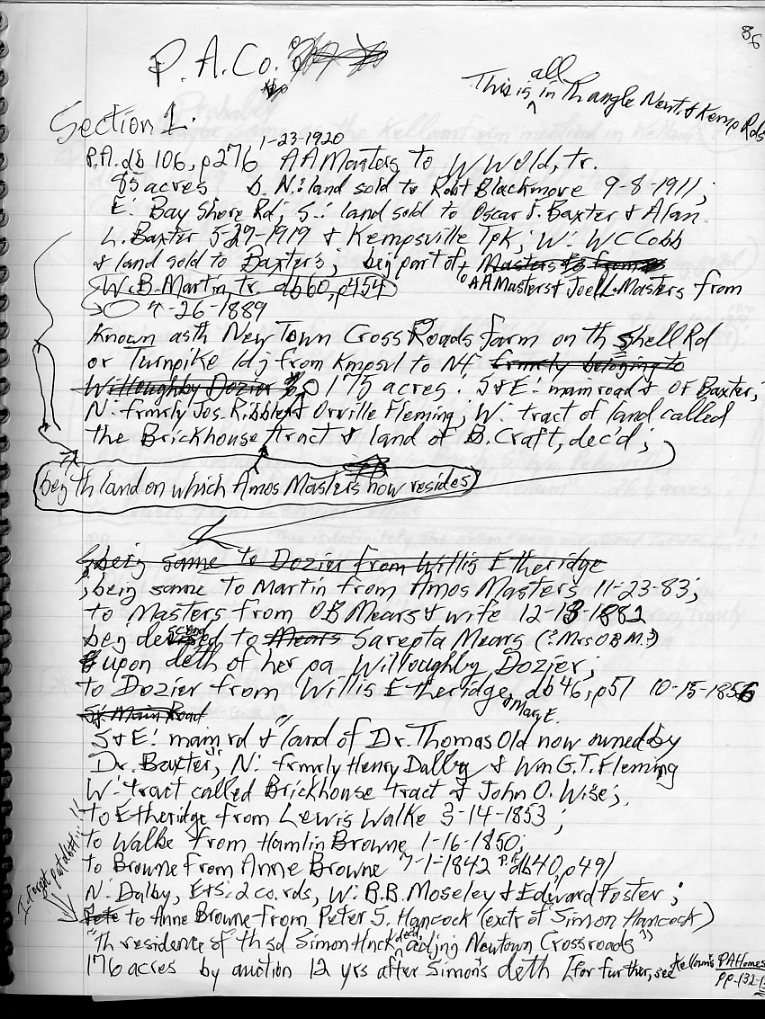 86
P.A.Co.
This is all in th angle Newt. & Kemp Rds
Section 1:
1-23-1920
P.A. db 106, p276 AA Masters to W W Old, tr.
85 acres b. N: land sold to Robt Blackmore 9-8-1911;
E: Bay Shore Rd; S: land sold to Oscar J. Baxter & Alan
L. Baxter 5-29-1919 & Kempsville Tpk; W: WC Cobb
& land sold to Baxter's; beig part of Masters from
W.B. Martin, tr. db60, p454 to AA Masters & Joel L. Masters from
4-26-1889
Known as th New Town Cross Roads farm on th Shell Rd
or Turnpike ldj from Kmpsvl to Nf frmrly belonging to
Willoughby Dozier 175 acres: S&E: main road & OF Baxter;
N: frmrly Jos. Kibble & Orville Fleming; W: tract of land called
the Brickhouse tract & land of B. Craft, dec'd;
beig th land on which Amos Masters now resides
being same to Dozier from Willis Etheridge
; being same to Martin from Amos Masters 11-23-83;
to Masters from OB Mears & wife 12-13-1882
beig devised to Mears Sarepta Mears (?Mrs OB M.?)
upon deth of her pa Willoughby Dozier;
to Dozier from Willis Etheridge, db46, p51 10-15-1856
& Mary E.
S: Main Road
S&E: main rd & land of Dr. Thomas Old now owned by
Dr. Baxter; N: frmrly Henry Dalby & Wm G.T. Fleming
W: tract called Brickhouse tract & John O. Wise;
to Etheridge from Lewis Walke 3-14-1853;
to Walke from Hamlin Browne 1-16-1850;
to Browne from Anne Browne 7-1-1842 P.A. db40, p491
N: Dalby, E&S: 2 co. rds, W: B.B. Moseley & Edward Foster;
I forget
to Anne Browne from Peter S. Hancock (exctr of Simon Hancock)
"Th residence of th sd Simon Hnck decd, adjng Newtown Crossroads"
176 acres by auction 12 yrs after Simon's deth [for further, see Kellam's PA Homes
pp.132-